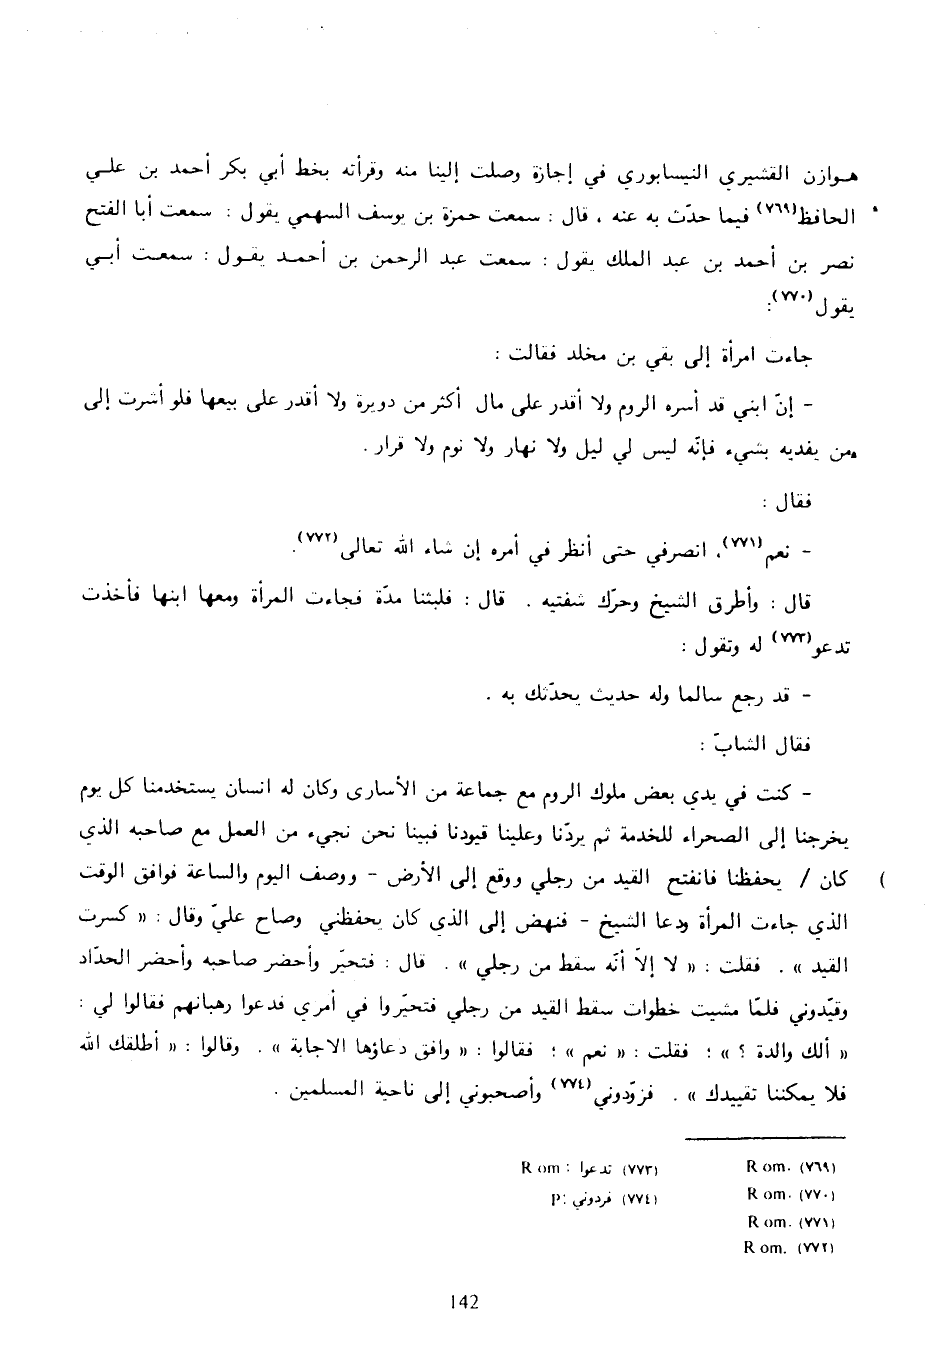 هوازن القشيري النيسابوري في إجازة وصلت إلينا منه وقرأته بخط أبي بكر أحمد بن علي
الحافظ(٧٦٩) فيما حدّث به عنه ، قال : سمعت حمزة بن يوسف السهمي يقول : سمعت أبا الفتح
نصر بن أحمد بن عبد الملك يقول : سمعت عبد الرحمن بن أحمد يقول : سمعت أبي
يقول(٧٧٠):
جاءت امرأة إلى بقي بن مخلد فقالت :
- إنّ ابني قد أسره الروم ولا أقدر على مال أكثر من دويرة ولا أقدر على بيعها فلو أشرت إلى
من يفديه بشيء فإنّه ليس لي ليل ولا نهار ولا نوم ولا قرار .
فقال :
- نعم(٧٧١)، انصرفي حتى أنظر في أمره إن شاء الله تعالى(٧٧٢).
قال : وأطرق الشيخ وحرّك شفتيه . قال : فلبثنا مدّة فجاءت المرأة ومعها ابنها فأخذت
تدعو(٧٧٣) له وتقول :
- قد رجع سالما وله حديث يحدّثك به .
فقال الشابّ :
- كنت في يدي بعض ملوك الروم مع جماعة من الأسارى وكان له انسان يستخدمنا كل يوم
يخرجنا إلى الصحراء للخدمة ثم يردّنا وعلينا قيودنا فبينا نحن نجيء من العمل مع صاحبه الذي
كان / يحفظنا فانفتح القيد من رجلي ووقع إلى الأرض - ووصف اليوم والساعة فوافق الوقت )
الذي جاءت المرأة ودعا الشيخ - فنهض إلى الذي كان يحفظني وصاح عليّ وقال : « كسرت
القيد » . فقلت : « لا إلاّ أنّه سقط من رجلي » . قال : فتحيّر وأحضر صاحبه وأحضر الحدّاد
وقيّدوني فلمّا مشيت خطوات سقط القيد من رجلي فتحيّروا في أمري فدعوا رهبانهم فقالوا لي :
« ألك والدة ؟ » ؛ فقلت : « نعم » ؛ فقالوا : « وافق دعاؤها الاجابة » . وقالوا : « أطلقك الله
فلا يمكننا تقييدك » . فزوّدوني(٧٧٤) وأصحبوني إلى ناحية المسلمين .
(٧٦٩) Rom.
(٧٧٠) Rom.
(٧٧١) Rom.
(٧٧٢) Rom.
(٧٧٣) تدعوا : Rom
(٧٧٤) فردوني :P
142